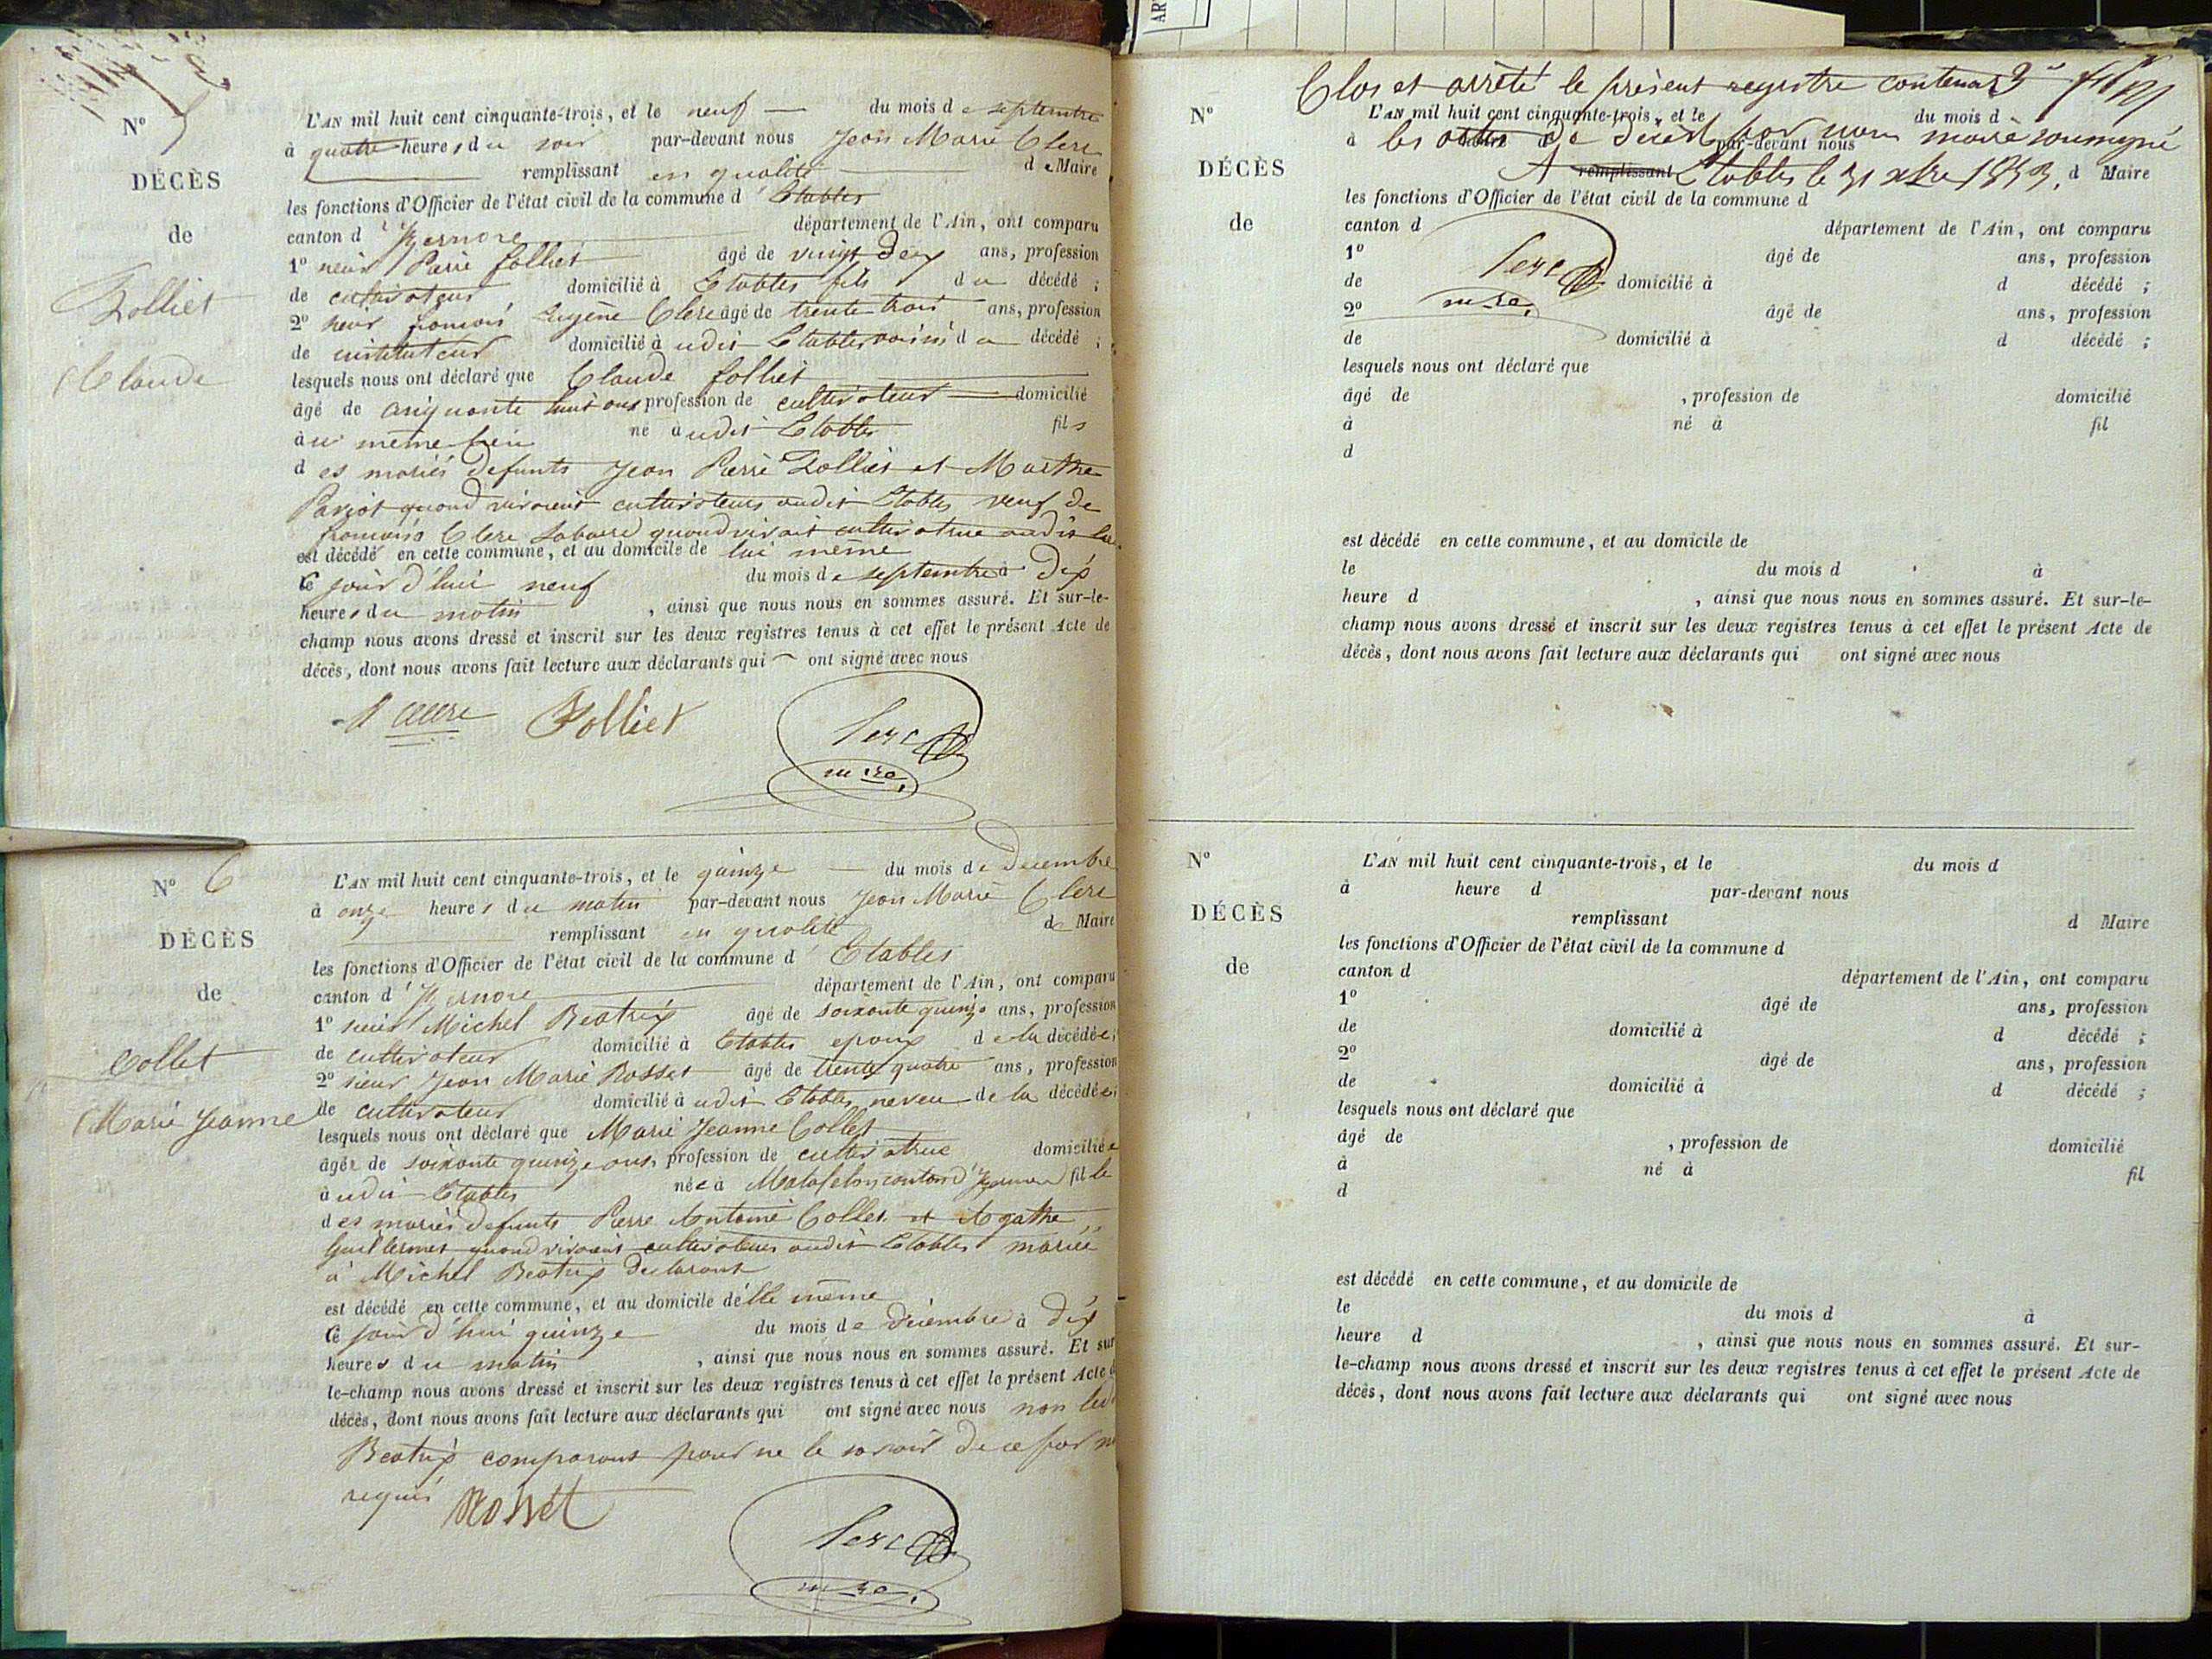 Nº 5
DÉCÈS
de
Folliet
Claude
L'AN mil huit cent cinquante-trois, et le neuf du mois de septembre
à quatre heures du soir par-devant nous Jean Marie Clerc
remplissant en qualité de Maire
les fonctions d'Officier de l'état civil de la commune d'Etables
canton d'Izernore département de l'Ain, ont comparu
1º sieur Pierre folliet âgé de vingt deux ans, profession
de cultivateur domicilié à Etables fils du décédé ;
2º sieur francois Eugène Clerc âgé de trente trois ans, profession
de instituteur domicilié à udit Etables voisin du décédé ;
lesquels nous ont déclaré que Claude folliet
âgé de cinquante huit ans profession de cultivateur domicilié
àu même lieu né àudit Etables fils
des mariés defunts Jean Pierre Folliet et Marthe
quand vivaient cultivateurs audit Etables veuf de
Clerc quand vivait cultivatrice audit lieu
est décédé en cette commune, et au domicile de lui même
Ce jour d'hui neuf du mois de septembre à dix
heures du matin , ainsi que nous nous en sommes assuré. Et sur-le-
champ nous avons dressé et inscrit sur les deux registres tenus à cet effet le présent Acte de
décès, dont nous avons fait lecture aux déclarants qui ont signé avec nous
Folliet Clerc
mre.
Nº 6
DÉCÈS
de
Collet
Marie Jeanne
L'AN mil huit cent cinquante-trois, et le quinze du mois de Decembre
à onze heures du matin par-devant nous Jean Marie Clerc
remplissant en qualité de Maire
les fonctions d'Officier de l'état civil de la commune d'Etables
canton d'Izernore département de l'Ain, ont comparu
1º sieur Michel Beatrix âgé de soixante quinze ans, profession
de cultivateur domicilié à Etables epoux de la décédée ;
2º sieur Jean Marie Rosset âgé de trente quatre ans, profession
de cultivateur domicilié à udit Etables neveu de la décédée ;
lesquels nous ont déclaré que Marie Jeanne Collet
âgée de soixante quinze ans, profession de cultivatrice domiciliée
àudit Etables née à Matafelon canton d'Izernore fille
des mariés defunts Pierre Antoine Collet et Agathe
Guillermet quand vivaient cultivateurs audit Etables mariée
à Michel Beatrix declarant
est décédé en cette commune, et au domicile d'elle même
Ce jour d'hui quinze du mois de décembre à dix
heures du matin , ainsi que nous nous en sommes assuré. Et sur
le-champ nous avons dressé et inscrit sur les deux registres tenus à cet effet le présent Acte
décès, dont nous avons fait lecture aux déclarants qui ont signé avec nous non ledit
Beatrix comparant pour ne le savoir de ce par
requis Rosset
Clerc
mre.
Clos et arrêté le présent registre contenant
Nº L'AN mil huit cent cinquante-trois, et le du mois d
à les actes de décès par nous maire soussigné
heure d par-devant nous
DÉCÈS
A Etables le 31 xbre 1853.
remplissant d Maire
les fonctions d'Officier de l'état civil de la commune d
de
canton d département de l'Ain, ont comparu
1º âgé de ans, profession
Clerc
de domicilié à d décédé ;
mre.
2º âgé de ans, profession
de domicilié à d décédé ;
lesquels nous ont déclaré que
âgé de , profession de domicilié
à né à fil
d
est décédé en cette commune, et au domicile de
le du mois d à
heure d , ainsi que nous nous en sommes assuré. Et sur-le-
champ nous avons dressé et inscrit sur les deux registres tenus à cet effet le présent Acte de
décès, dont nous avons fait lecture aux déclarants qui ont signé avec nous
Nº
DÉCÈS
de
L'AN mil huit cent cinquante-trois, et le du mois d
à heure d par-devant nous
remplissant d Maire
les fonctions d'Officier de l'état civil de la commune d
canton d département de l'Ain, ont comparu
1º âgé de ans, profession
de domicilié à d décédé ;
2º âgé de ans, profession
de domicilié à d décédé ;
lesquels nous ont déclaré que
âgé de , profession de domicilié
à né à fil
d
est décédé en cette commune, et au domicile de
le du mois d à
heure d , ainsi que nous nous en sommes assuré. Et sur-
le-champ nous avons dressé et inscrit sur les deux registres tenus à cet effet le présent Acte de
décès, dont nous avons fait lecture aux déclarants qui ont signé avec nous